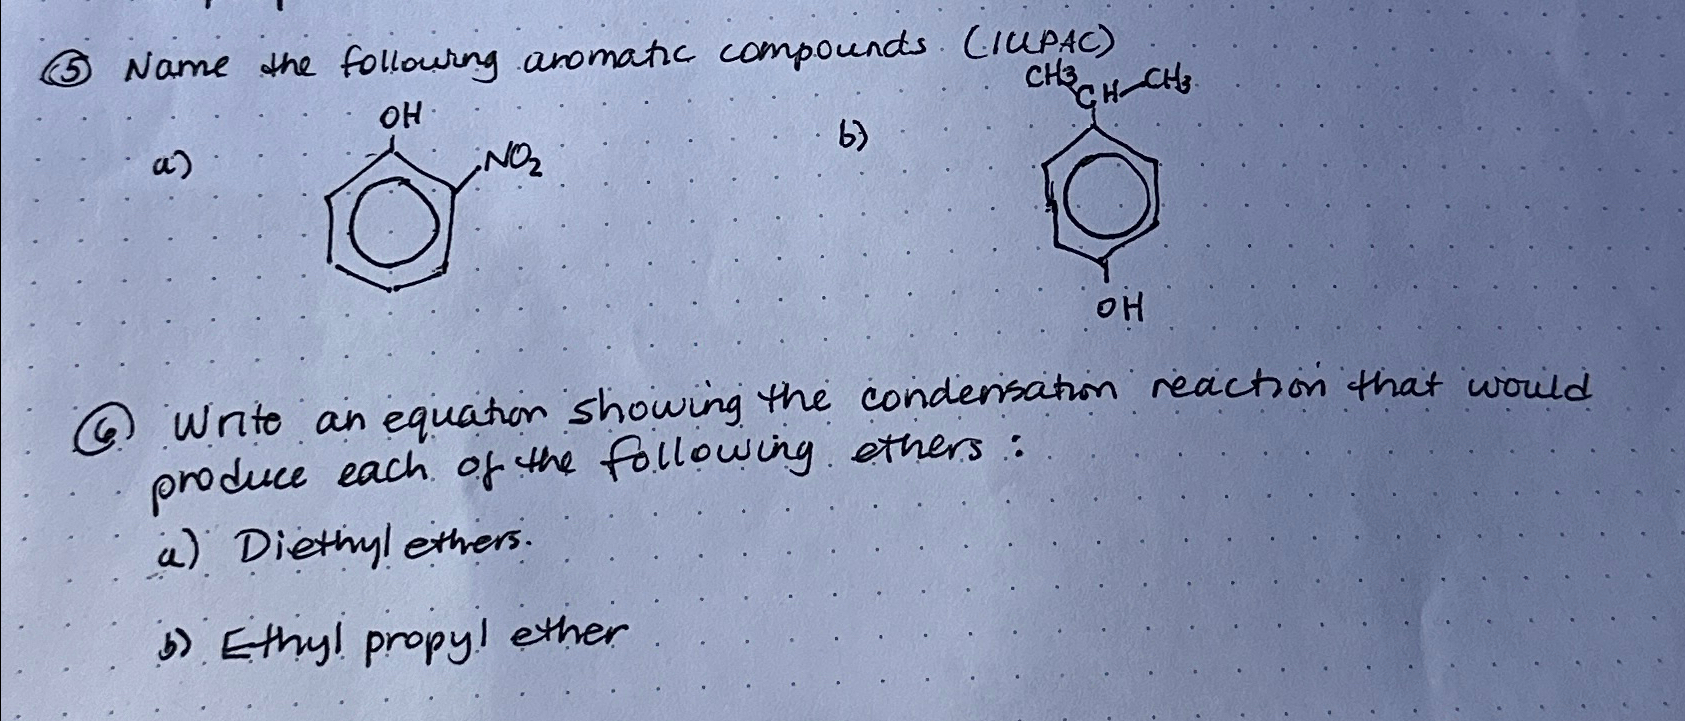 ⑤ Name the following aromatic compounds. (IUPAC)
CH3
CH CH3
OH
a) NO2
b)
OH
⑥ Write an equation showing the condensation reaction that would
produce each of the following ethers :
a) Diethyl ethers.
b) Ethyl propyl ether